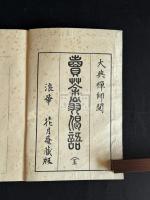 大典禪師閲
賣茶翁偈語 全
浪華 花月菴藏版